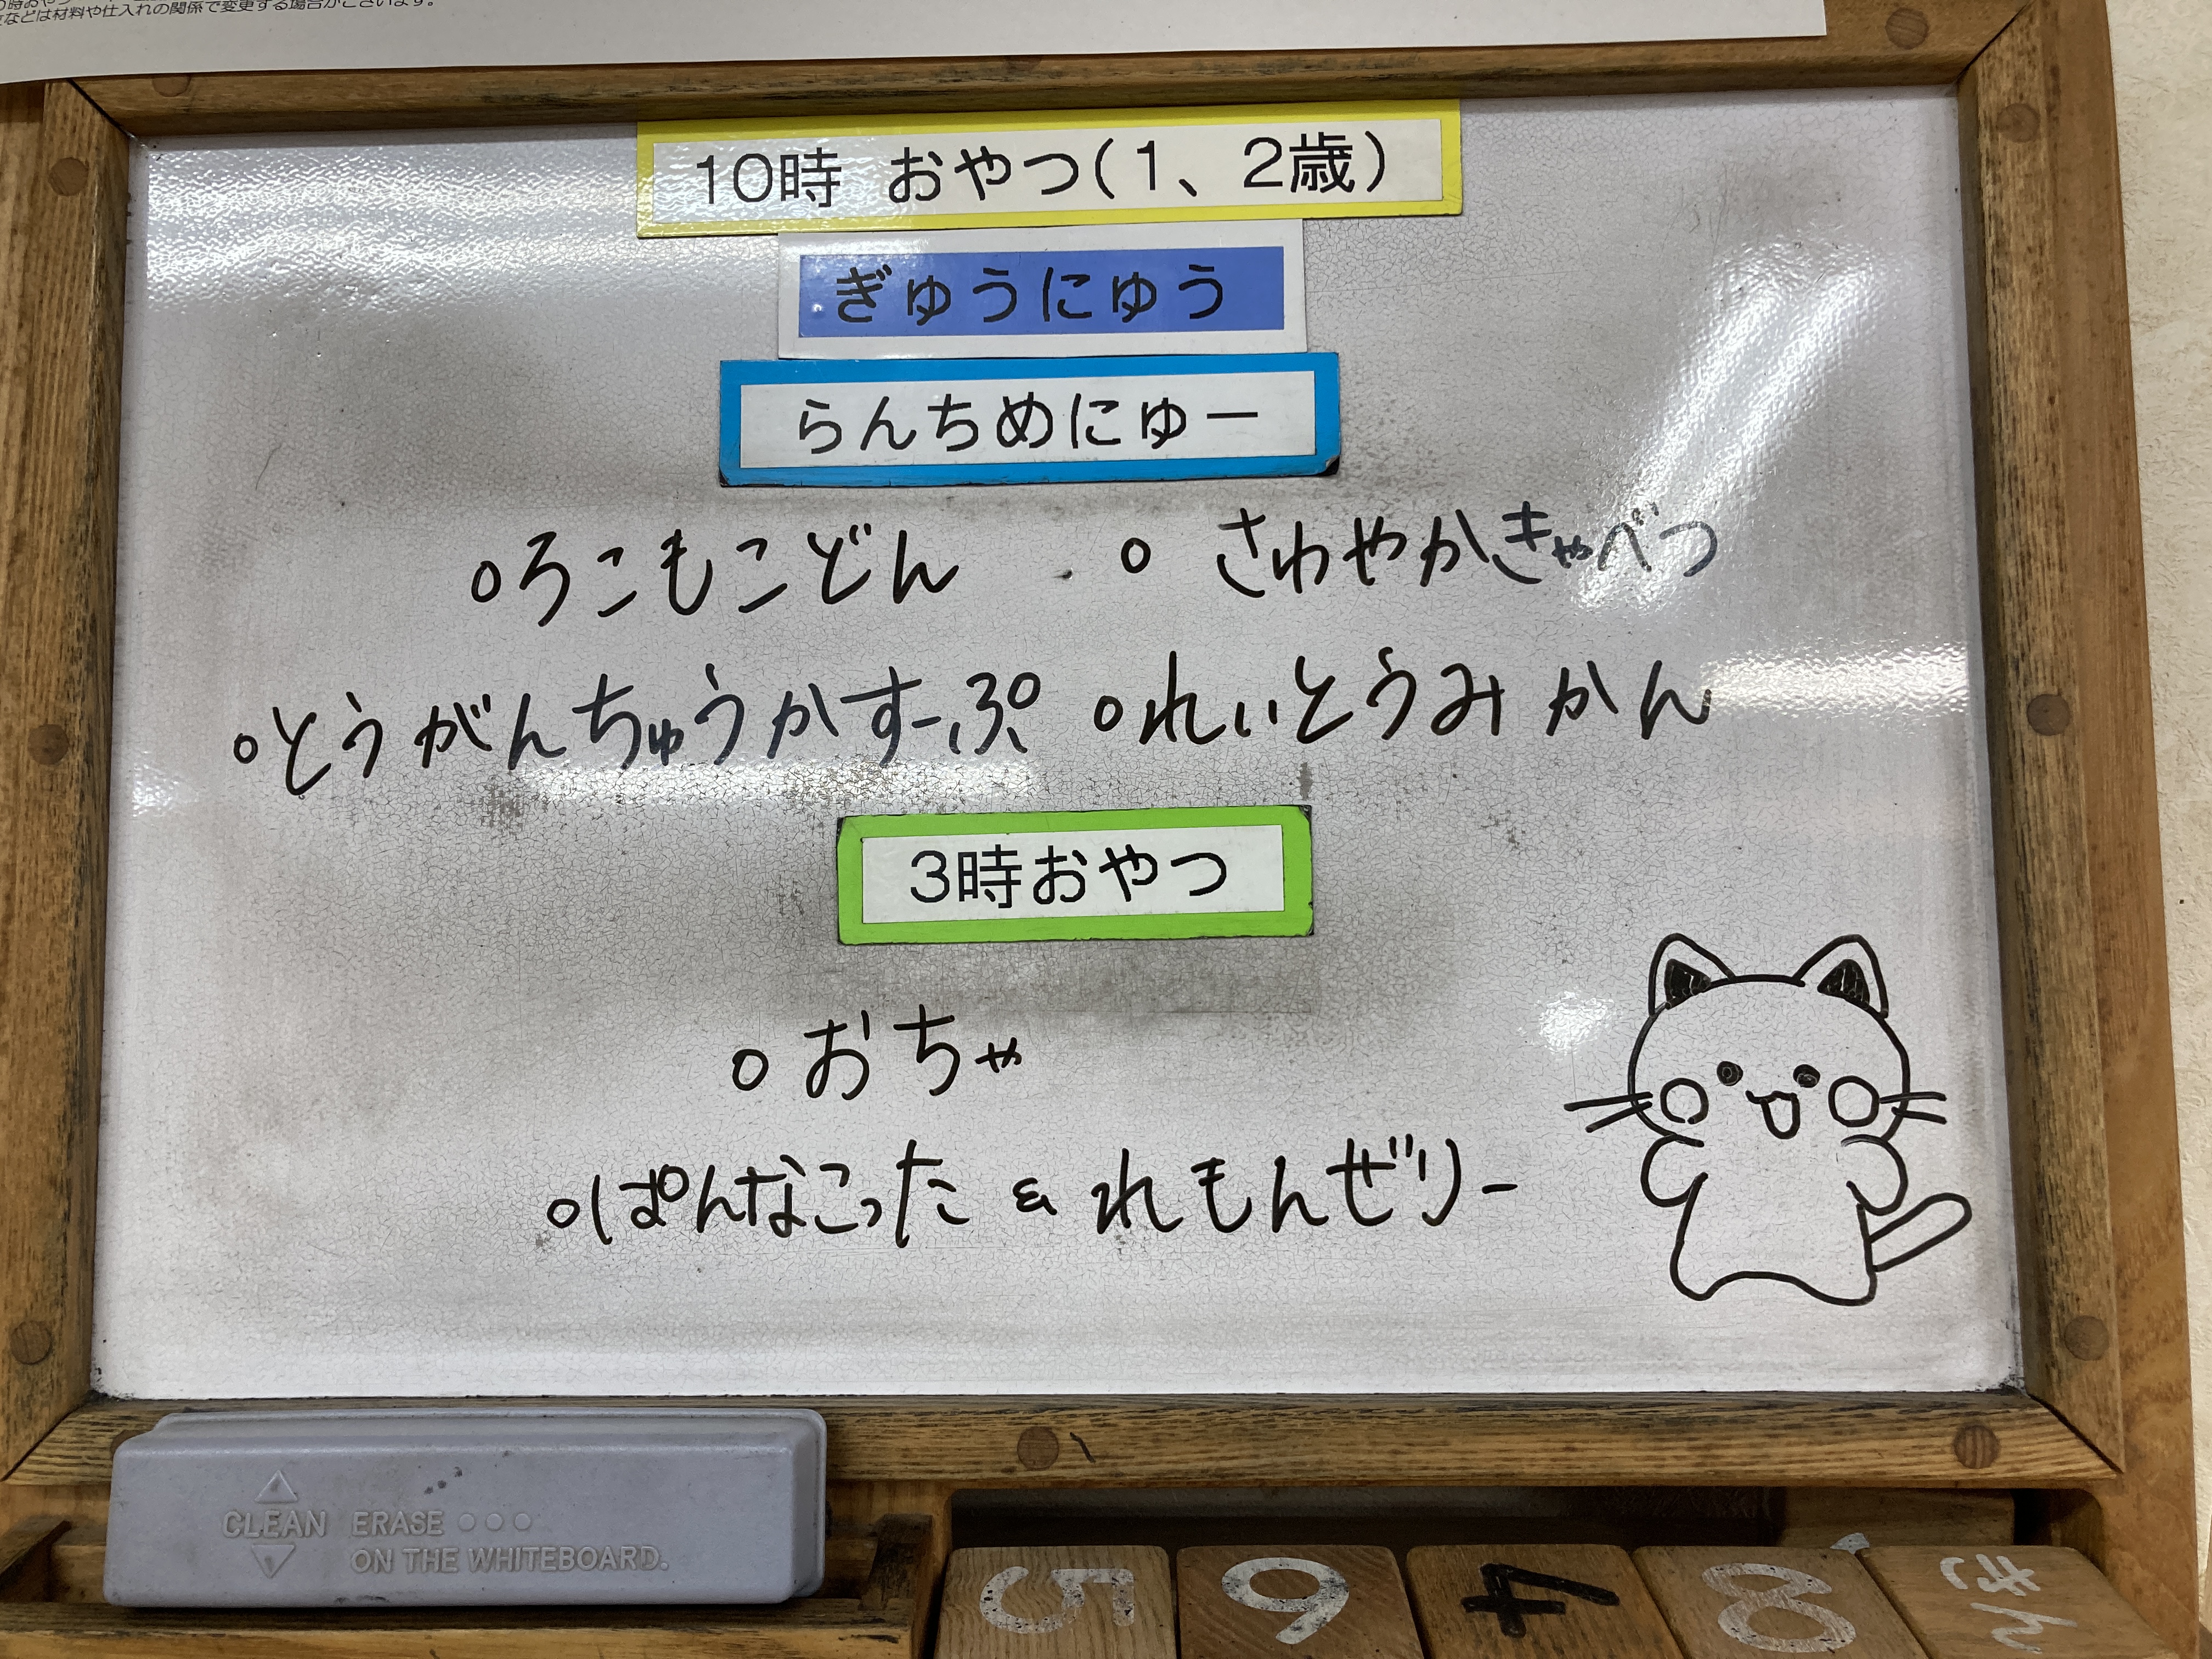 などは材料や仕入れの関係で変更する場合がございます。
10時 おやつ(1、2歳)
ぎゅうにゅう
らんちめにゅー
○ろこもこどん ○さわやかきゃべつ
○とうがんちゅうかすーぷ ○れいとうみかん
3時おやつ
○おちゃ
○ぱんなこった & れもんぜりー
CLEAN ERASE ○○○
ON THE WHITEBOARD.
5 6 4 8 きん